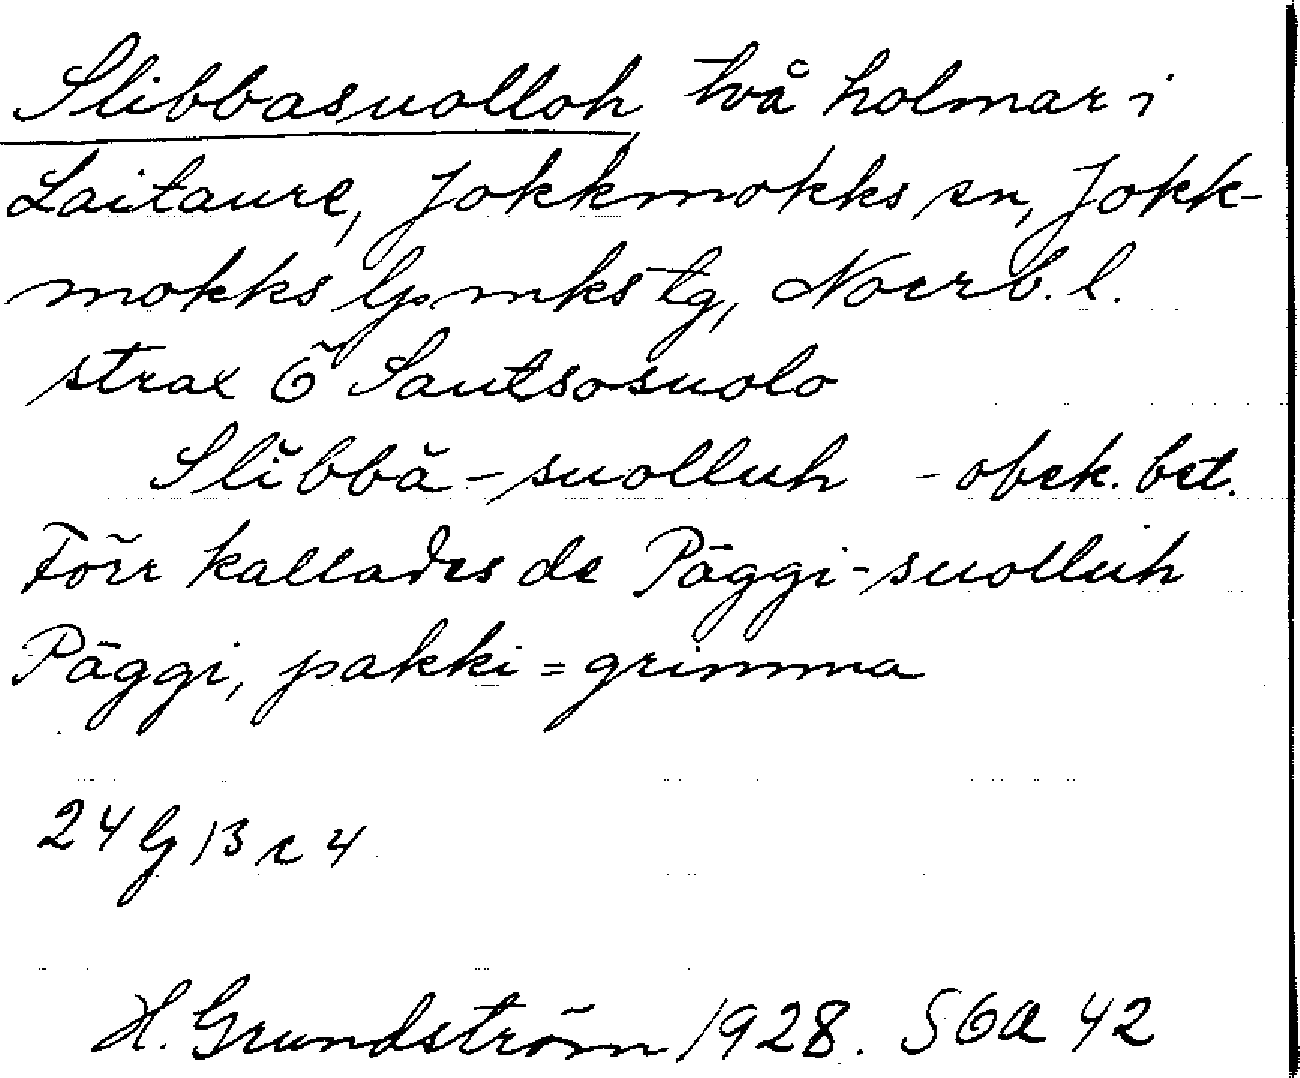 Slibbasuolloh två holmar i
Laitaure, Jokkmokks sn, Jokk-
mokks lpmks tg, Norrb. l.
strax Ö Sautsosuolo
Slĭbbă-suolluh - obek. bet.
Förr kallades de Pāggi-suolluh
Pāggi, pakki = grimma
24 G 13 c 4
H. Grundström 1928. SGA 42